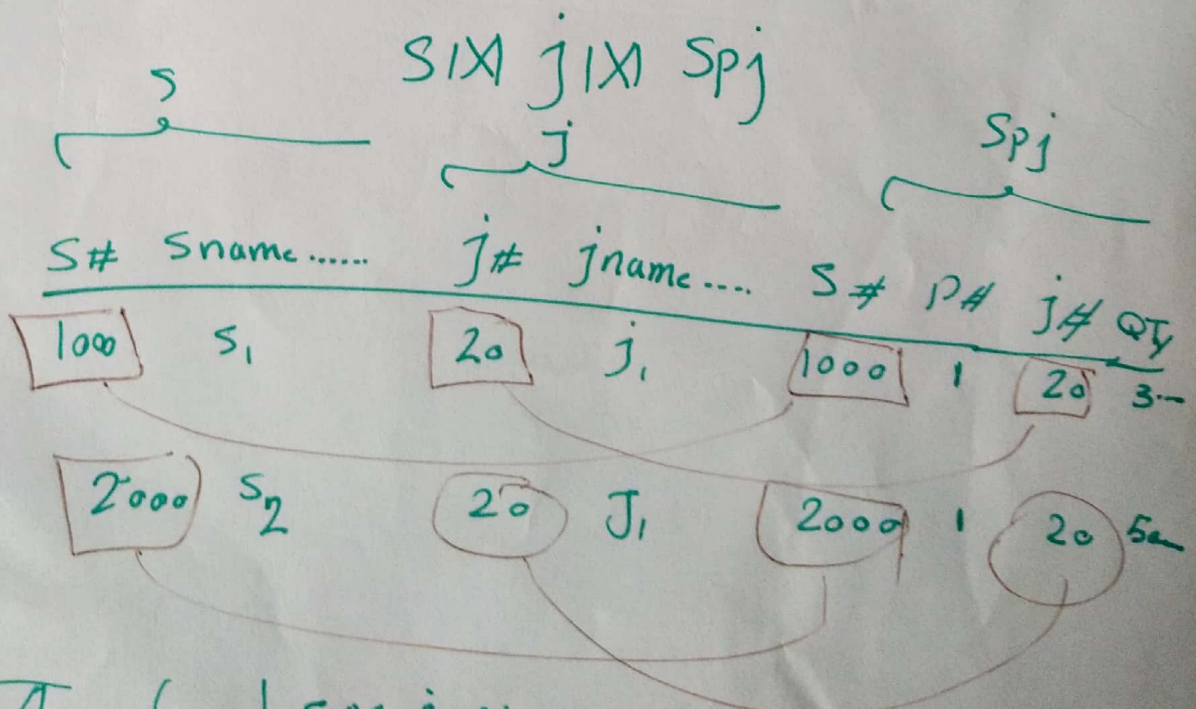 S|X| j|X| Spj
S j Spj
S# Sname...... j# jname.... S# P# j# QTy
1000 S1 20 j1 1000 1 20
2000 S2 20 J1 2000 1 20